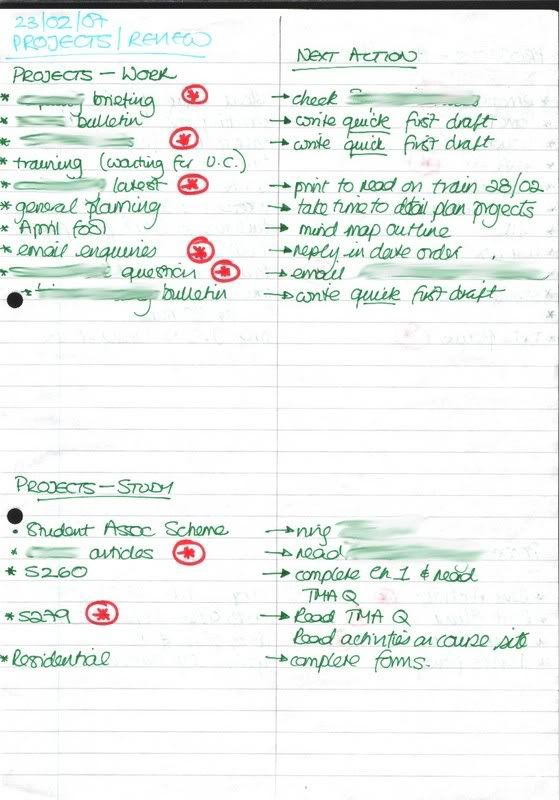 23/02/07
PROJECTS/REVIEW
NEXT ACTION
PROJECTS – WORK
* briefing * → check
* bulletin → write quick first draft
* * → write quick first draft
* training (waiting for U.C.)
* latest * → print to read on train 28/02
* general planning → take time to detail plan projects
* April → mind map outline
* email enquiries * → reply in date order.
* question * → email
* bulletin → write quick first draft
PROJECTS – STUDY
• Student Assoc Scheme → ring
* articles * → read
* S260 → complete Ch 1 & read
TMA Q
* S279 * → Read TMA Q
Read activities on course site
* Residential → complete forms.